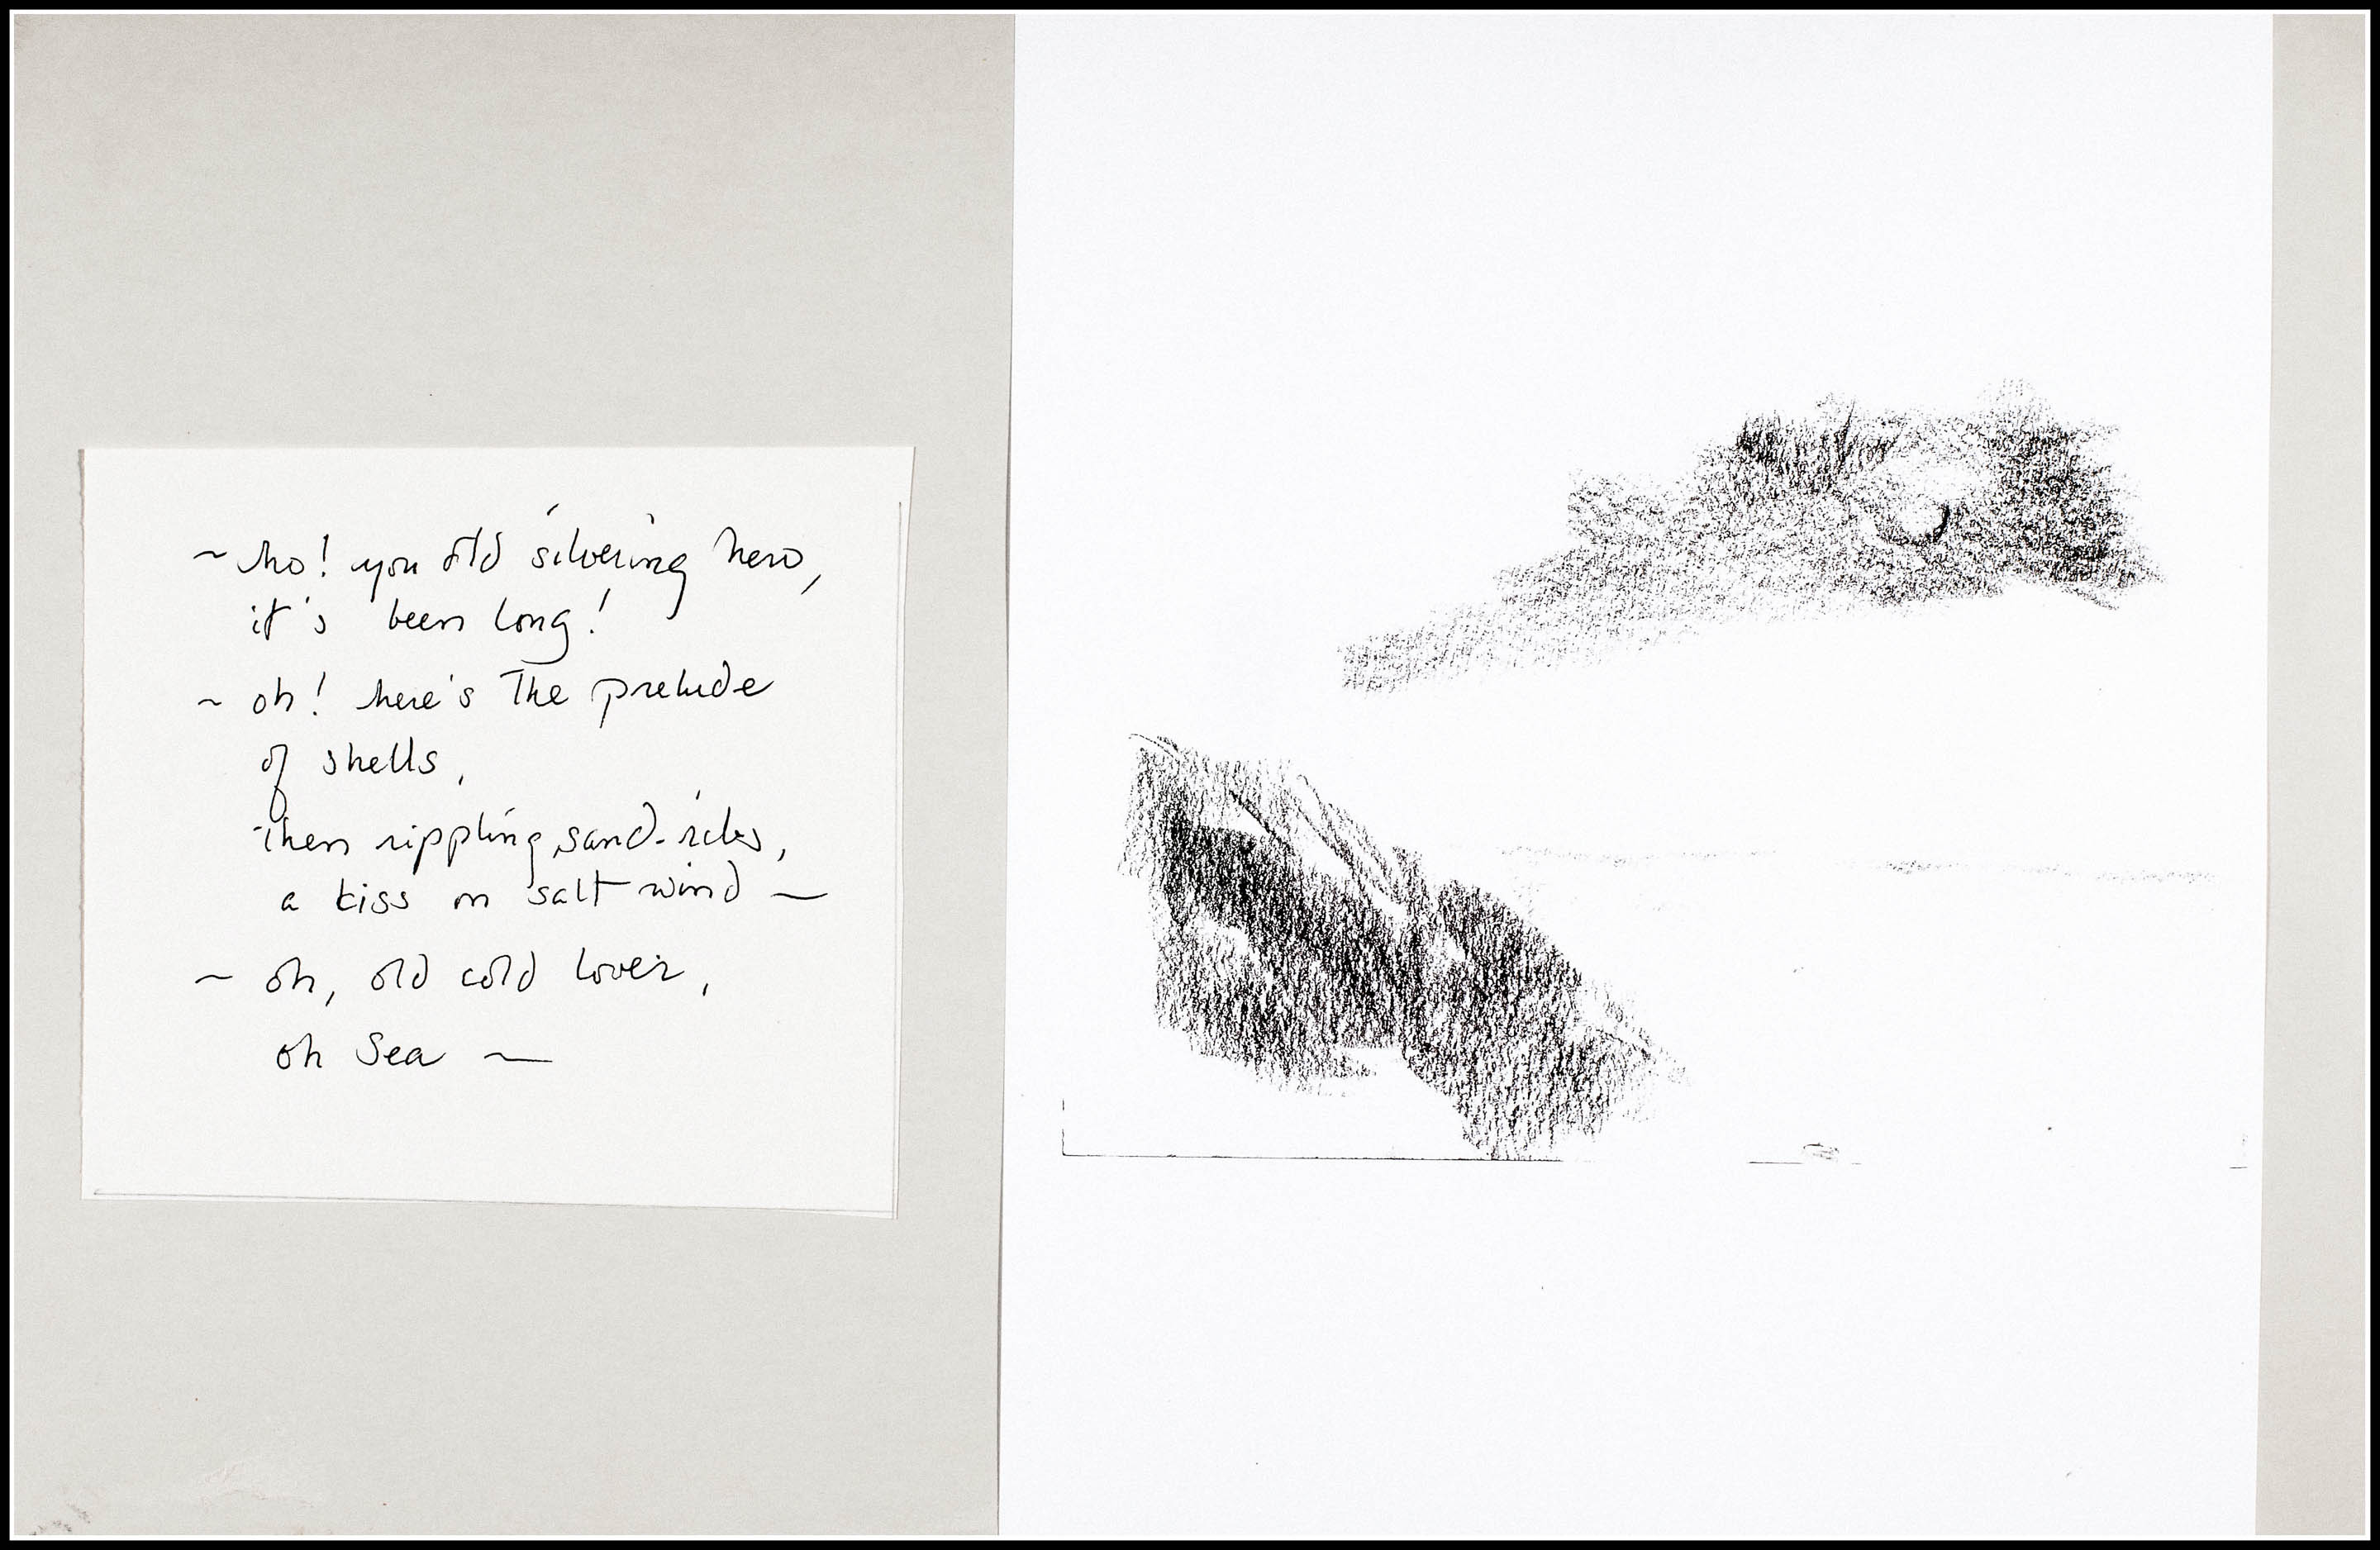 ~ ho! you old silvering hero,
it's been long!
~ oh! here's the prelude
of shells,
then rippling sand-ribs,
a kiss on salt wind —
~ oh, old cold lover,
oh Sea —